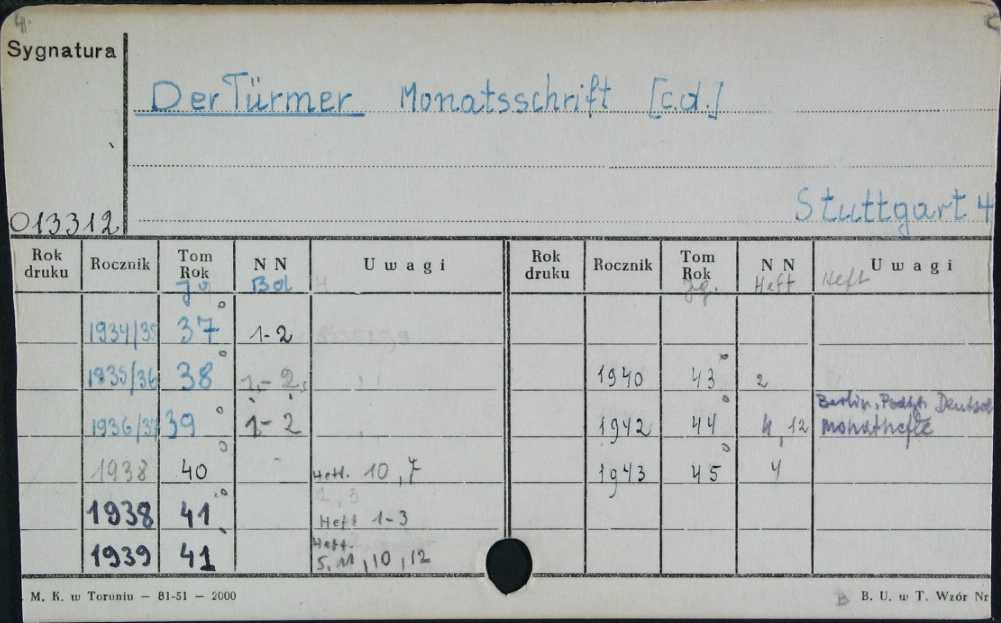 Sygnatura
Der Türmer Monatsschrift [c.d.]
Stuttgart 4
013312
Rok druku Rocznik Tom Rok Jg. N N Bd Uwagi Rok druku Rocznik Tom Rok Jg. N N Heft Uwagi Heft
1934/35 37° 1-2
1935/36 38° 1-2 1940 43° 2
Berlin, Podtyt. Deutsche
1936/37 39° 1-2 1942 44° 4, 12 Monathefte
1938 40° Heft. 10, 7 1943 45° 4
1938 41° Heft 1-3
Heft.
1939 41 5, 11, 10, 12
M. K. w Toruniu — 81-51 — 2000 B. U. w T. Wzór Nr